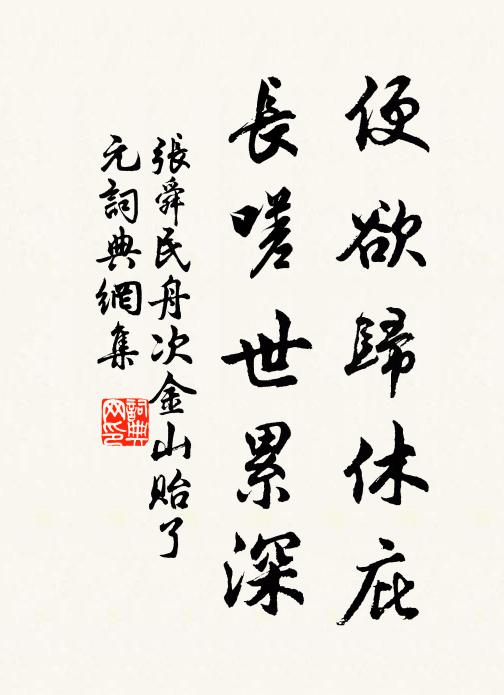 便欲歸休庇
長嗟世累深
張舜民舟次金山貽了
元詞典網集
詞典网印